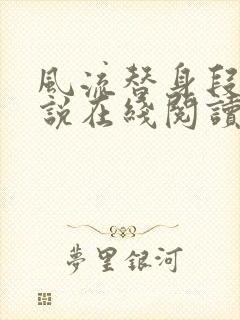 風流替身段
說在綫閱讀
夢里銀河